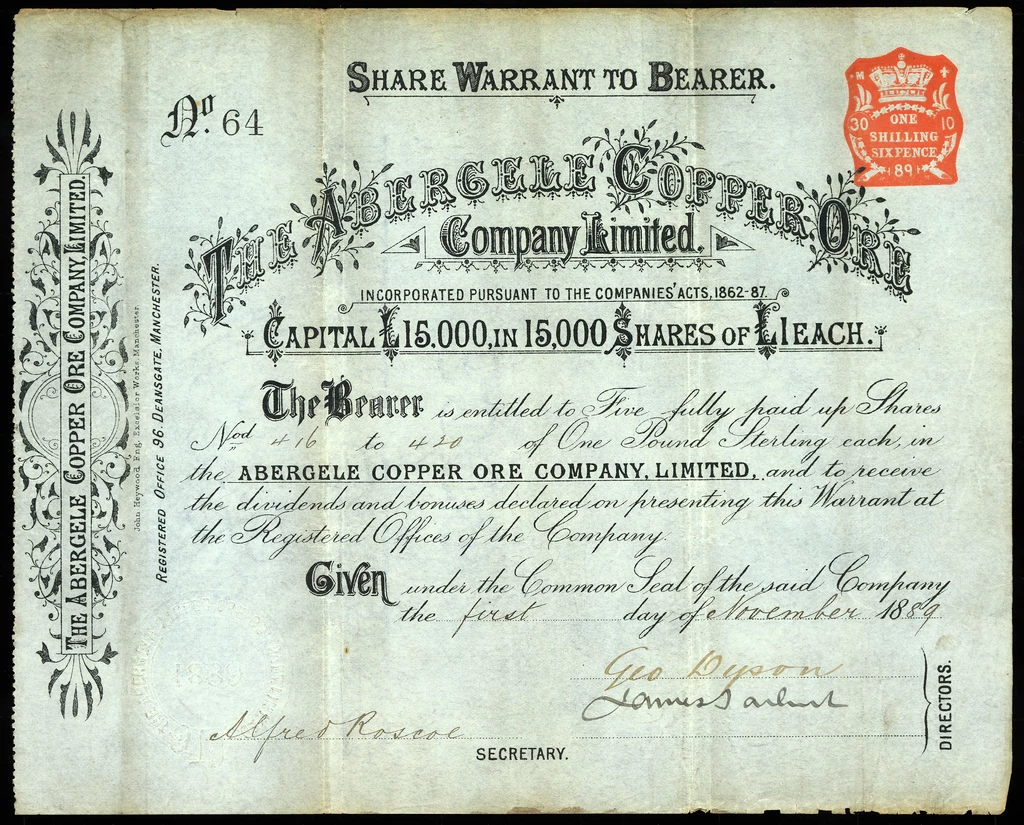 SHARE WARRANT TO BEARER.
No. 64
M
30 10
ONE
SHILLING
SIXPENCE
89
THE ABERGELE COPPER ORE
Company Limited.
INCORPORATED PURSUANT TO THE COMPANIES' ACTS, 1862-87.
CAPITAL £15.000, IN 15,000 SHARES OF £1 EACH.
The Bearer is entitled to Five fully paid up Shares
Nod 416 to 420 of One Pound Sterling each, in
the ABERGELE COPPER ORE COMPANY, LIMITED, and to receive
the dividends and bonuses declared on presenting this Warrant at
the Registered Offices of the Company.
Given under the Common Seal of the said Company
the first day of November 1889
Geo Dyson
James
DIRECTORS.
Alfred Roscoe
SECRETARY.
THE ABERGELE COPPER ORE COMPANY, LIMITED.
John Heywood Eng. Excelsior Works. Manchester
REGISTERED OFFICE 96. DEANSGATE, MANCHESTER.